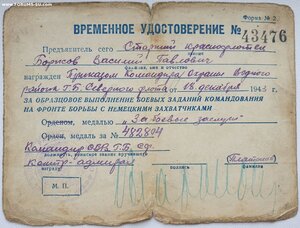 www.FORUMS-su.com
Форма № 2
ВРЕМЕННОЕ УДОСТОВЕРЕНИЕ № 43476
Предъявитель сего Старший краснофлотец
Борисов Василий Павлович
фамилия, имя и отчество
награжден Приказом Командира Охраны Водного
района Г.Б. Северного флота от 08 декабря 1943 г.
ЗА ОБРАЗЦОВОЕ ВЫПОЛНЕНИЕ БОЕВЫХ ЗАДАНИЙ КОМАНДОВАНИЯ
НА ФРОНТЕ БОРЬБЫ С НЕМЕЦКИМИ ЗАХВАТЧИКАМИ
Орденом, медалью „За боевые заслуги"
Орден, медаль за № 482804
Командир ОВР Г.Б. СФ
должность, воинское звание вручившего
контр-адмирал
награду
подпись
М. П.